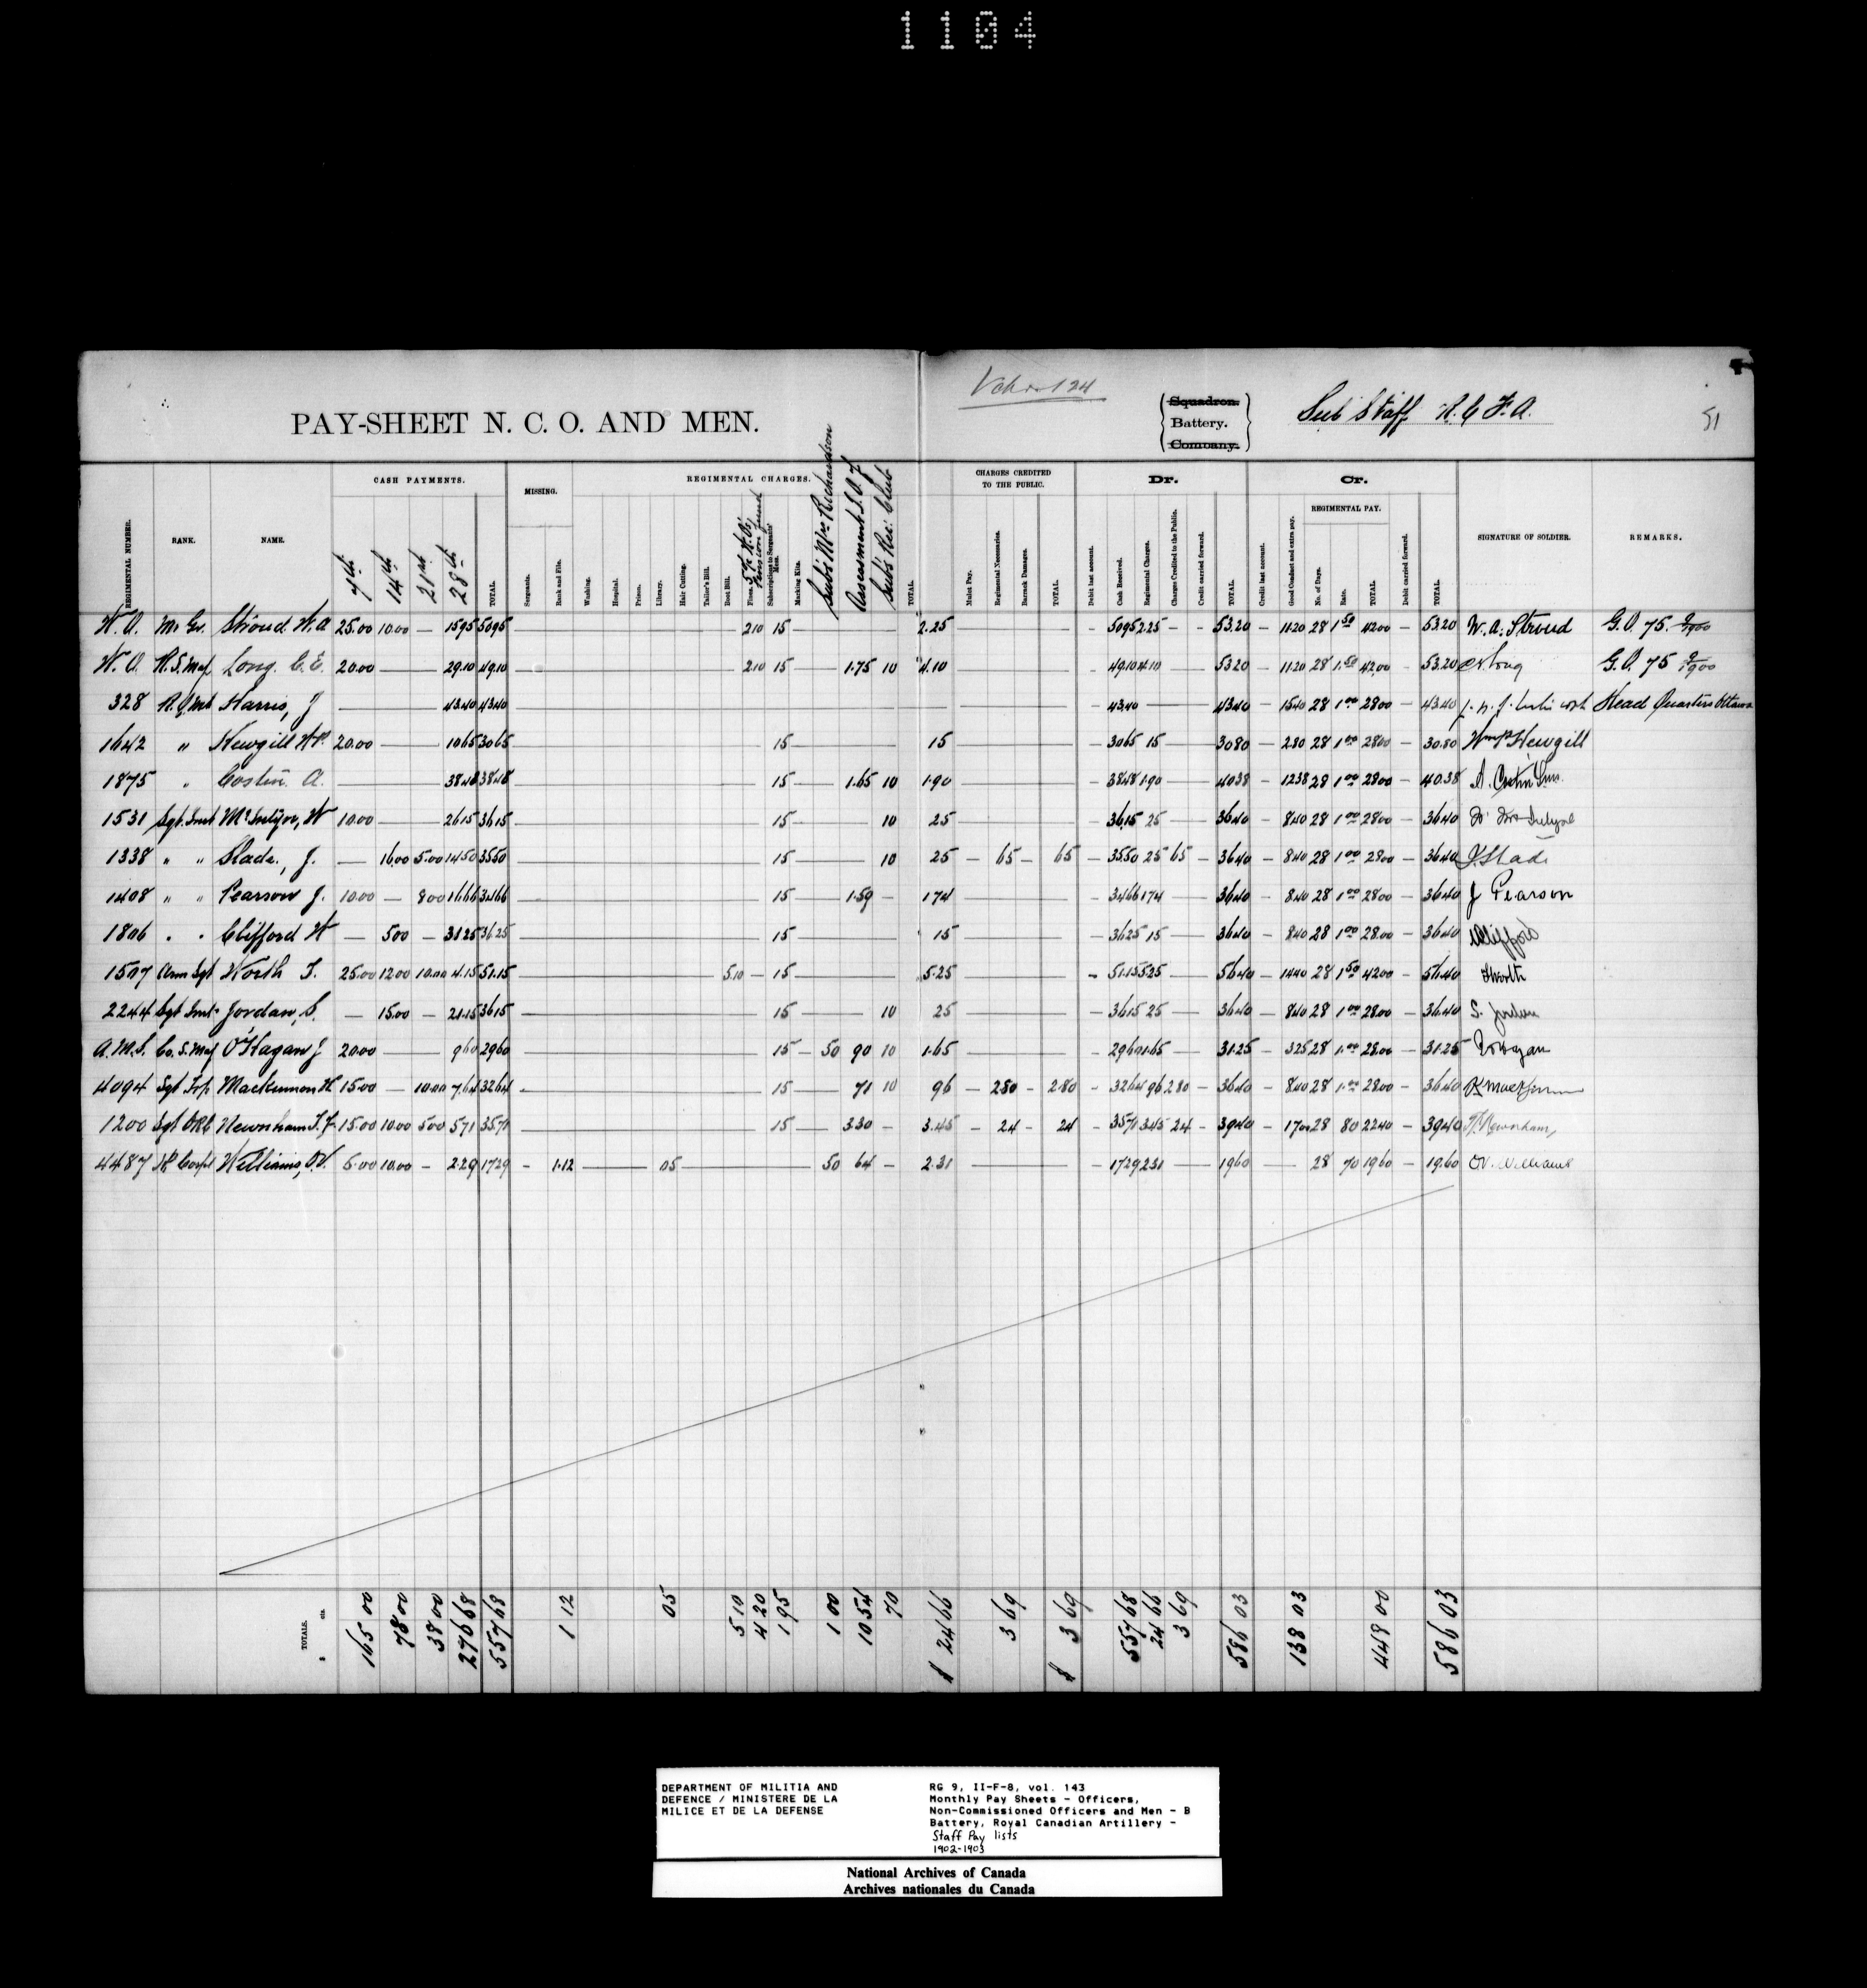 1104
Vchr 124
51
PAY-SHEET N. C. O. AND MEN.
Squadron.
Battery.
Company.
Sub Staff R. C. F. A.
CASH PAYMENTS. MISSING. REGIMENTAL CHARGES. CHARGES CREDITED TO THE PUBLIC. Dr. Cr.
REGIMENTAL PAY.
REGIMENTAL NUMBER. RANK. NAME. 7th 14th 21st 28th TOTAL Sergeants. Rank and File. Washing. Hospital. Prison. Library. Hair Cutting. Tailor's Bill. Boot Bill. Fines. 5% W.O's Pension Fund Subscriptions to Sergeants' Mess. Marking Kits. Subs Mrs Richardson Assessment S.A.F Subs Rec: Club TOTAL. Mulct Pay. Regimental Necessaries. Barrack Damages. TOTAL. Debit last account. Cash Received. Regimental Charges. Charges Credited to the Public. Credit carried forward. TOTAL. Credit last account. Good Conduct and extra pay. No. of Days. Rate. TOTAL Debit carried forward. TOTAL. SIGNATURE OF SOLDIER. REMARKS.
W.O. Mr Gr. Stroud W.A 25.00 10.00 — 1595 5095 210 15 2.25 — 5095 2.25 — — 53.20 — 1120 28 1 50 4200 — 5320 W. A. Stroud G.O. 75. 9/1900
W.O. R.S.Maj Long C.E. 20.00 — 29.10 49.10 210 15 — 1.75 10 4.10 — 4910 410 — 5320 — 1120 28 1.50 42.00 — 53.20 G.O. 75 9/1900
328 R.Q.M.S Harris, J — 4340 4340 — 4340 — 4340 — 1540 28 1 00 2800 — 4340 Head Quarters Ottawa
1642 " Hewgill W.P. 20.00 — 1065 3065 15 15 — 3065 15 — 3080 — 280 28 1 00 2800 — 30.80 Wm P Hewgill
1875 " Costin A. — 3848 3848 15 — 1.65 10 1.90 — 3848 1.90 — 4038 — 1238 28 1 00 2800 — 40.38
1531 Sgt. Inst McIntyre, W 10.00 — 2615 3615 15 — 10 25 — 3615 25 — 3640 — 840 28 1 00 2800 — 3640
1338 " " Slade, J. — 1600 5.00 1450 3550 15 — 10 25 — 65 — 65 — 3550 25 65 — 3640 — 840 28 1 00 2800 — 3640 J. Slade
1408 " " Pearson J. 10.00 — 800 1666 3466 15 — 1.59 — 174 — 3466 174 — 3640 — 840 28 1 00 2800 — 3640 J Pearson
1806 " " Clifford W — 500 — 3125 3625 15 — 15 — 3625 15 — 3640 — 840 28 1 00 28.00 — 3640 Clifford
1507 Arm Sgt Worth T. 25.00 12.00 10.00 4.15 51.15 5.10 — 15 — 5.25 — 5115 525 — 5640 — 1440 28 1 50 4200 — 5640 Worth
2244 Sgt Inst. Jordan, S. — 15.00 — 21.15 3615 15 — 10 25 — 3615 25 — 3640 — 840 28 1 00 2800 — 3640 S. Jordan
A.M.S. Co. S. Maj O'Hagan J 20.00 — 960 2960 15 — 50 90 10 1.65 — 2960 1.65 — 31.25 — 325 28 1.00 28.00 — 31.25 O'Hagan
4094 Sgt Trp. Mackinnon K. 15.00 — 10.00 7.64 3264 15 — 71 10 96 — 280 — 280 — 3264 96 280 — 3640 — 840 28 1.00 2800 — 3640
1200 Sgt ORC Newnham T.J. 15.00 10.00 500 571 3571 15 — 330 — 3.45 — 24 — 24 — 3571 345 24 — 3940 — 1700 28 80 2240 — 3940 Newnham,
4487 Corpl Williams, O.V. 5.00 10.00 — 2.29 1729 — 1.12 — 05 — 50 64 — 2.31 — 1729 231 — 1960 — 28 70 1960 — 19.60 O.V. Williams
TOTALS. $ cts. 165 00 78 00 38 00 276 68 557 68 1 12 05 5 10 4 20 1 95 1 00 10 54 70 $ 24 66 3 69 $ 3 69 557 68 24 66 3 69 586 03 138 03 448 00 586 03
DEPARTMENT OF MILITIA AND
DEFENCE / MINISTERE DE LA
MILICE ET DE LA DEFENSE
RG 9, II-F-8, vol. 143
Monthly Pay Sheets - Officers,
Non-Commissioned Officers and Men - B
Battery, Royal Canadian Artillery -
Staff Pay lists
1902-1903
National Archives of Canada
Archives nationales du Canada